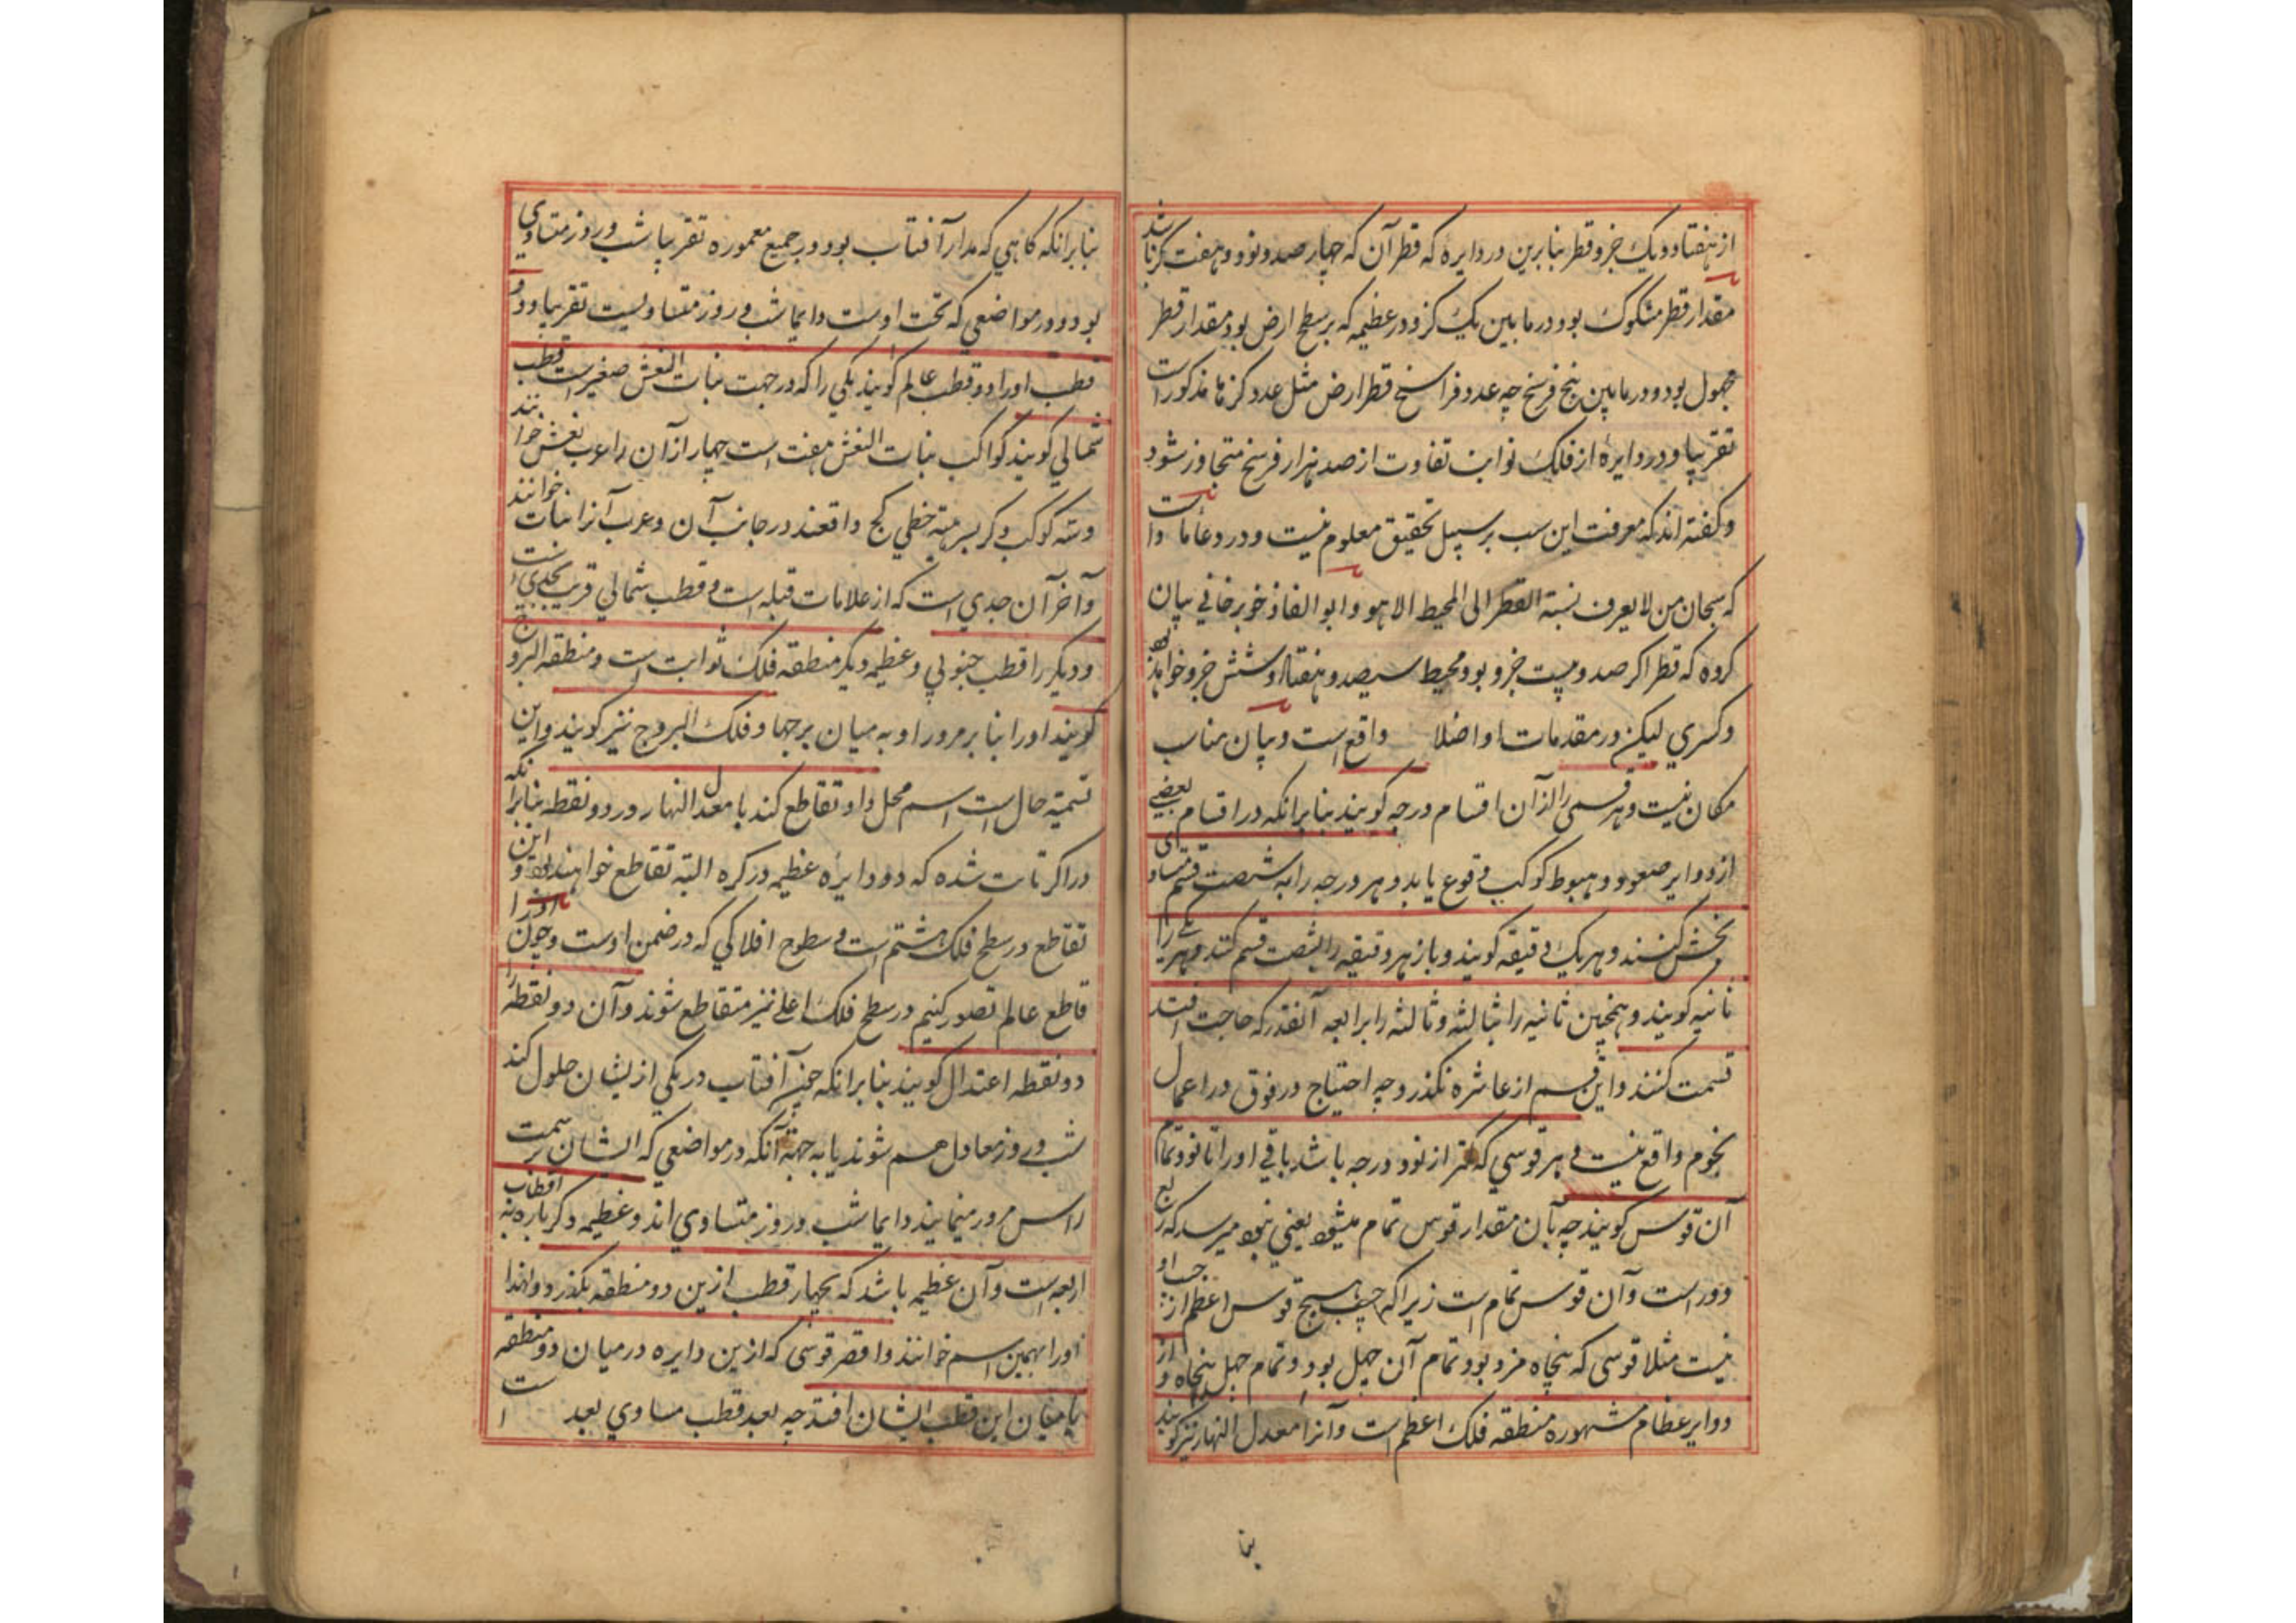 از هفتاد و یک جزو قطر بنابرین در دایره که قطر آن که چهار صد و نود و هفت کز باشد
مقدار قطر مشکوک بود در مابین یک کز و در عظیمه که بر سطح ارض بود مقدار قطر
مجهول بود و در مابین پنج فرسخ چه عدد فراسخ قطر ارض مثل عدد کزها مذکور است
تقریبا و در دایرهٔ از فلک ثوابت تفاوت از صد هزار فرسخ متجاوز شود
و کفته اند که معرفت این نسب بر سبیل تحقیق معلوم نیست و در دعاها واست
که سبحان من لا یعرف نسبة القطر الی المحیط الا هو و ابو الفاذ خوبرخانی بیان
کرده که قطر اکر صد و بیست جزو بود محیط سیصد و هفتاد و شش جزو خواهد بود
و کسری لیکن در مقدمات او اخلا واقع است و بیان مناسب
مکان نیست و هر قسمی را از آن اقسام درجه کویند بنابر انکه در اقسام بعضی
از دوایر صعود و هبوط کوکب وقوع یابد و هر درجه را به شصت قسم متساوی
بخش کنند و هر یک دقیقه کویند و باز هر دقیقه را بشصت قسم کنند و هر یکی را
ثانیه کویند و همچنین ثانیه را بثالثه و ثالثه را برابعه آنقدر که حاجت افتد
قسمت کنند و این قسم از عاشره نکذرد چه احتیاج در فوق در اعمال
نجوم واقع نیست و هر قوسی که کمتر از نود درجه باشد باقی او را تا نود تمام
آن قوس کویند چه بآن مقدار قوس تمام میشود یعنی بنود میرسد که ربع
دور است و آن قوس تمام است زیرا که جیب هیچ قوس اعظم از جیب او
نیست مثلا قوسی که پنجاه جزو بود تمام آن چهل بود و تمام چهل پنجاه و از
دوایر عظام مشهوره منطقه فلک اعظم است و آنرا معدل النهار نیز کویند
بنا
بنابر انکه کاهی که مدار آفتاب بود در جمیع معموره تقریبا شب و روز متساوی
بود و در مواضعی که تحت اوست دایما شب و روز متساویست تقریبا و دو
قطب او را دو قطب عالم کویند یکی را که در جهت بنات النعش صغیر است قطب
شمالی کویند کواکب بنات النعش هفت است چهار از آن را عرب نعش خوانند
و سه کوکب دکر بسر هیئة خطی کج واقعند در جانب آن و عرب آنرا بنات خوانند
و آخر آن جدی است که از علامات قبله است و قطب شمالی قریب بجدی است
و دیکر را قطب جنوبی و عظیمه دیکر منطقه فلک ثوابت است و منطقه البروج
کویند او را بنابر مرور او به میان برجها و فلک البروج نیز کویند و این
تسمیة حال است اسم محل و او تقاطع کند با معدل النهار در دو نقطه بنابرانکه
در اکر ثابت شده که دو دایرهٔ عظیمه در کره البته تقاطع خواهند نمود و این
تقاطع در سطح فلک هشتم است و سطوح افلاکی که در ضمن اوست و چون او را
قاطع عالم تصور کنیم در سطح فلک اعلی نیز متقاطع شوند و آن دو نقطه را
دو نقطه اعتدال کویند بنابر انکه چون آفتاب در یکی از ایشان حلول کند
شب و روز معادل هم شوند یا به جهة آنکه در مواضعی که ایشان بر سمت
راس مرور مینمایند دایما شب و روز متساوی اند و عظیمه دکر ماره به اقطاب
اربعه است و آن عظیمه باشد که بچهار قطب ازین دو منطقه بکذرد و لهذا
او را بهمین اسم خوانند و اقصر قوسی که ازین دایره در میان دو منطقه
یا میان این قطب ایشان افتد چه بعد قطب مساوی بعد است